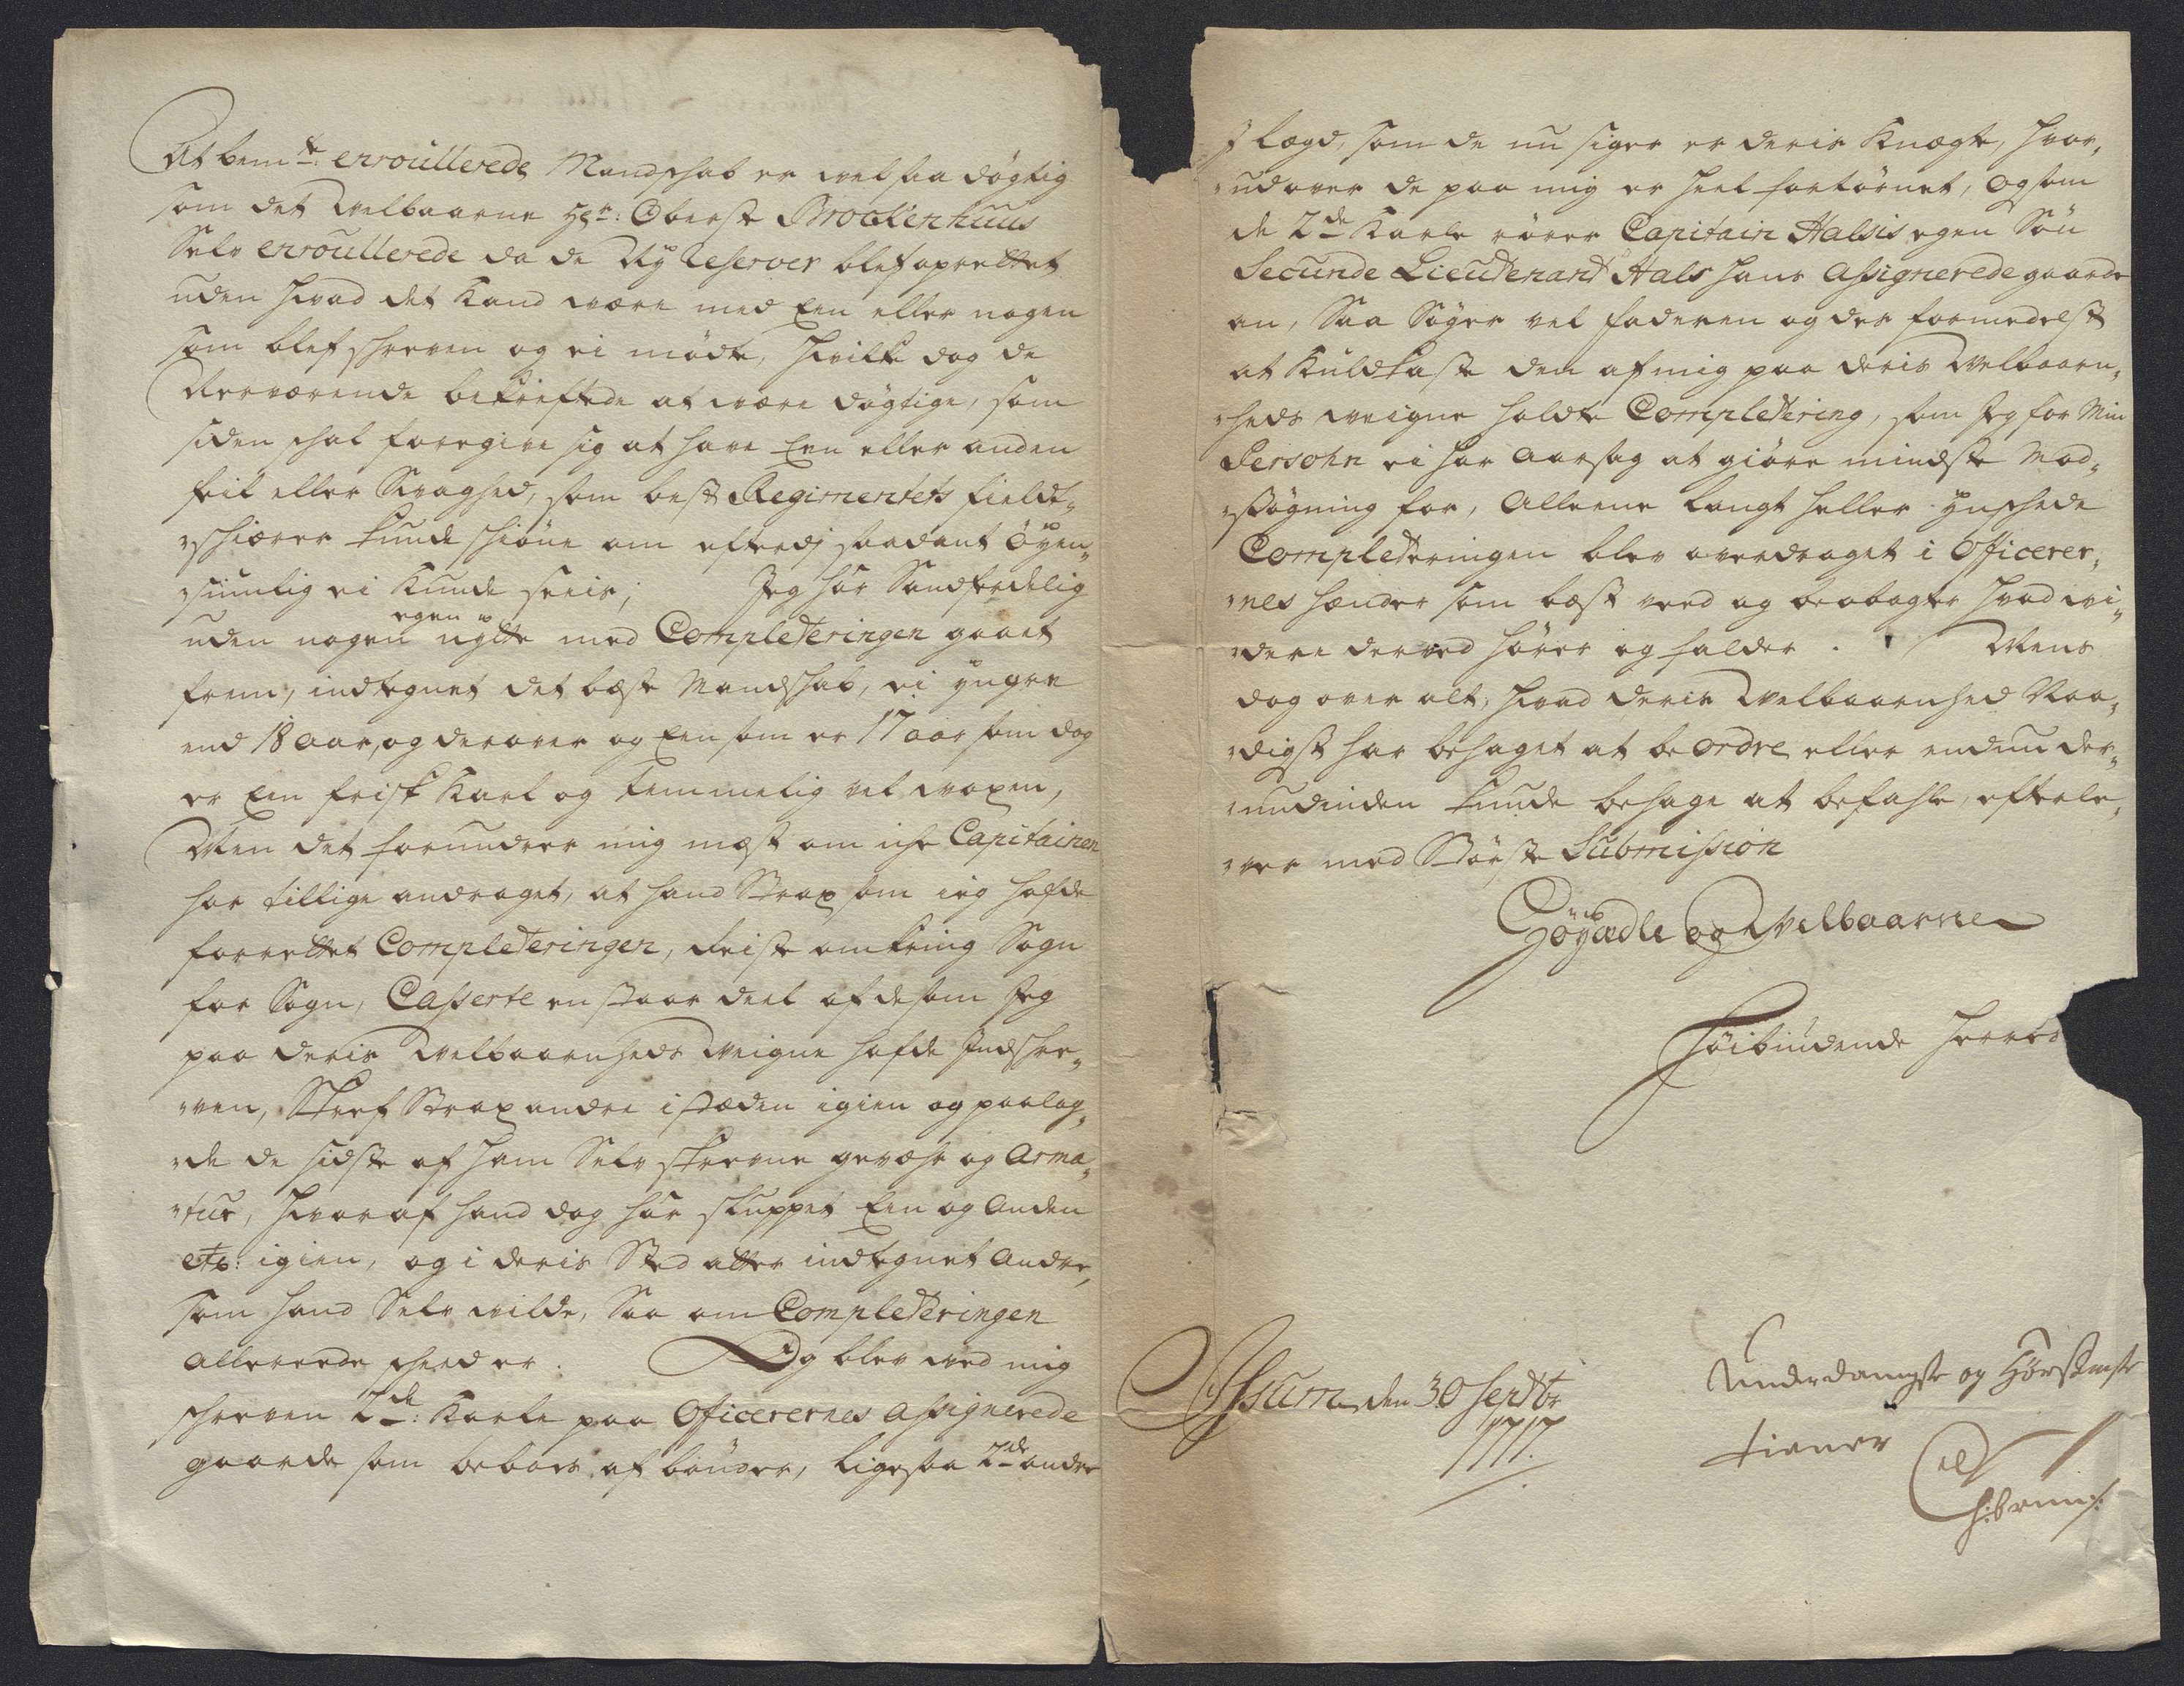 At bem.te: enroullerede Mandschab er vel saa døgtig
som det Velbaarne Hr: Oberste Brockenhuus
Selv enroullerede da de Ny Reserver blef oprettet
uden hvad det kand være med Een eller nogen
som blef schreven og ei mødte, hvilke dog de
Nerværende bekreftede at være døgtige, som
siden schal foregive sig at have Een eller anden
feil eller Svaghed, som best Regimentets Feldt„
„schiærer kunde schiøne om efterdj saadant Öyen„
„siunlig ei kunde seeis; Jeg har Sandferdelig
uden nogen egen nÿtte med Completeringen gaaet
frem, indtegnet det bæste Mandschab, ei yngere
end 18 aar, og derover og Een som er 17 aar som dog
er Een frisk karl og temmelig vel voxen,
Men det forundrer mig mest om iche Capitainen
har tillige andraget, at hand Strax som ieg hafde
forrettet Completeringen, Reiste omkring Sogn
for Sogn, Casserte en stoor deel af de som Jeg
paa deris Velbaarnheds Veigne hafde Indschre„
„ven, Skref Strax andre i stæden igien og paalag„
„de de sidste af ham Selv skrevne gevæhr og Arma„
„tur, hvoraf hand dog har sluppet Een og Anden
etc: igien, og i deris Sted atter indtegnet Andre,
som hand Selv vilde, Saa om Completeringen
Allereede scheed er. Og blev ved mig
schreven 2de: Karle paa Officerernes Assignerede
gaarde som beboes af bønder, ligesaa 2de andre
I lægd, som de nu siger er deris Knægte, hvor„
„udover de paa mig er heel fortørnet, og som
de 2de Karle rører Capitain Halsis egen Søn
Secunde Lieutenant Hals hans Assignerede gaarde
an, Saa Søger vel faderen og der formedelst
at kuldkaste den af mig paa deris Velbaarn„
„heds veigne holdte Completering, som Jeg for Min
Persohn ei har Aarsag at giøre mindste Mod„
„søgning for, Alleene langt heller ynschede
Completeringen blev overdraget i Officerer„
„nes hænder som best veed og beobagter hvad vi„
„dere derved hører og falder. Mens
dog over alt, hvad deris Velbaarnhed Naa„
„digst har behaget at beordre eller endnu der„
„nudinden kunde behage at befahle, efterle„
„ver med Største Submission
Höyædle og Velbaarne
Høibiudende Herres
Assum den 30 Septbr
1717.
Underdanigste og Hørsomste
tiener